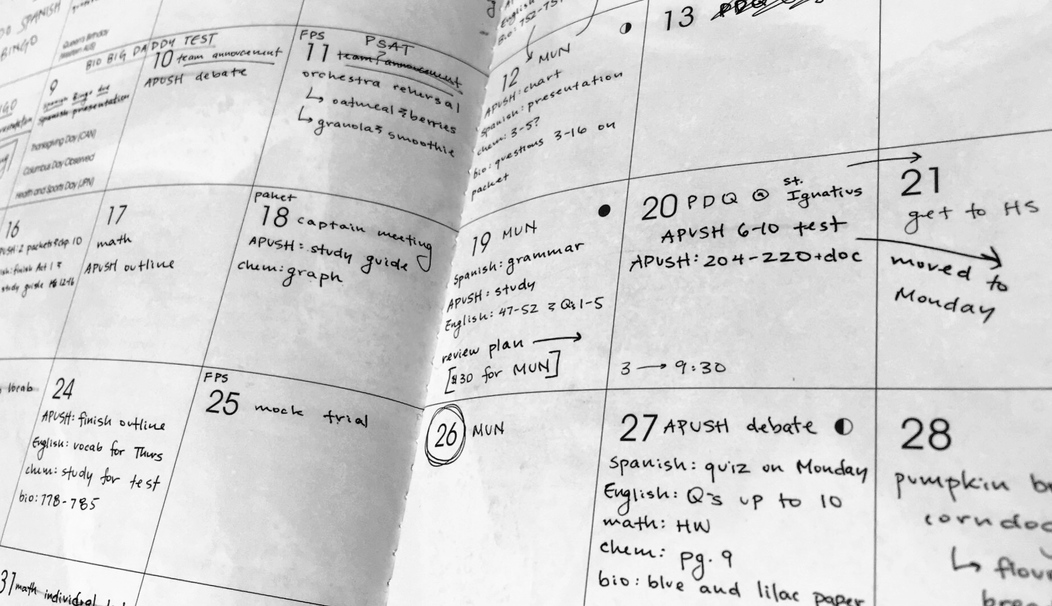 SPANISH
BINGO
9
spanish presentation
Thanksgiving Day (CAN)
Columbus Day Observed
Health and Sports Day (JPN)
BIO BIG DADDY TEST
10 team annoucement
APUSH debate
FPS
PSAT
11 team? annoucement
orchestra rehersal
↳ oatmeal & berries
↳ granola & smoothie
English:
12 MUN
APUSH: chart
Spanish: presentation
chem: 3-5?
bio: questions 3-16 on
packet
13 PDQ
16
17
math
APUSH outline
paket
18 captain meeting
APUSH: study guide
chem: graph
19 MUN
Spanish: grammar
APUSH: study
English: 47-52 & Qs 1-5
review plan →
[$30 for MUN]
20 PDQ @ St. Ignatius
APUSH 6-10 test
APUSH: 204-220 + doc
3 → 9:30
21
get to HS
moved to
Monday
vocab
24
APUSH: finish outline
English: vocab for Thurs
chem: study for test
bio: 778-785
FPS
25 mock trial
26 MUN
27 APUSH debate
Spanish: quiz on Monday
English: Q's up to 10
math: HW
chem: pg. 9
bio: blue and lilac paper
28
pumpkin
31 math individual